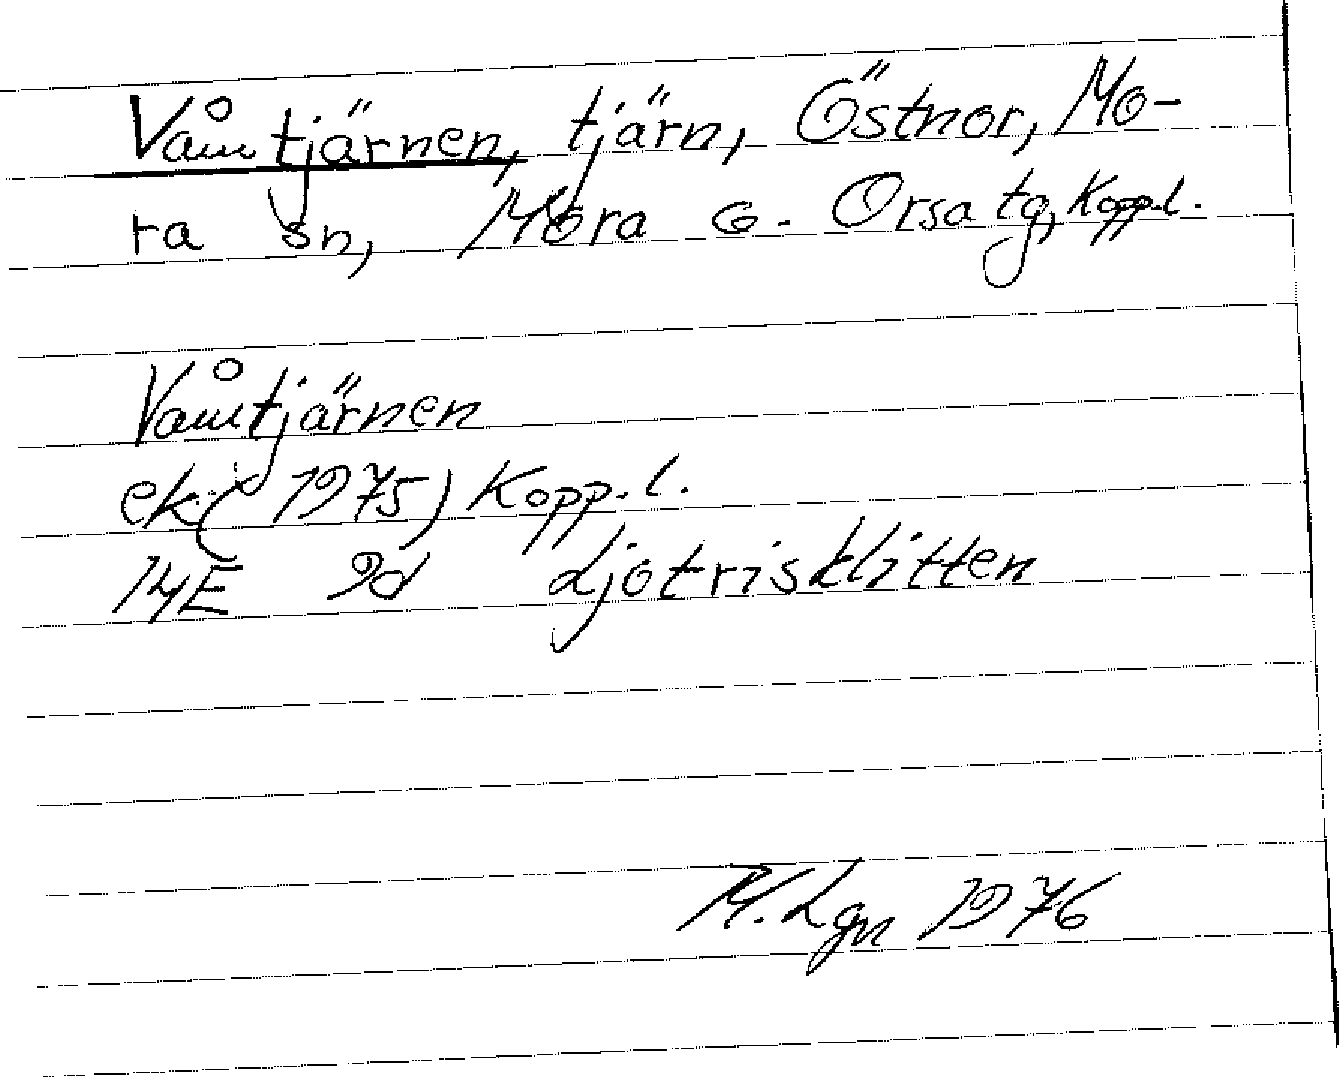 Våmtjärnen, tjärn, Östnor, Mo-
ra sn, Mora o. Orsa tg, Kopp.l.
Våmtjärnen
ek (1975) Kopp.l.
14E 9d Ljotrisklitten
M. Lgn 1976